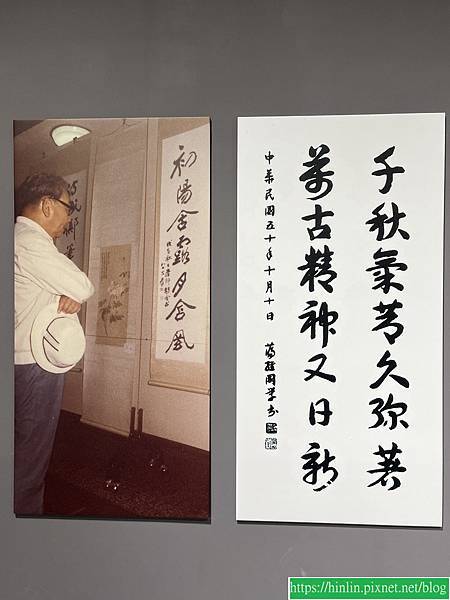 初陽含露夕含風
千秋氣節久彌著
萬古精神又日新
中華民國五十年十月十日
蔣經國學書
https://hinlin.pixnet.net/blog